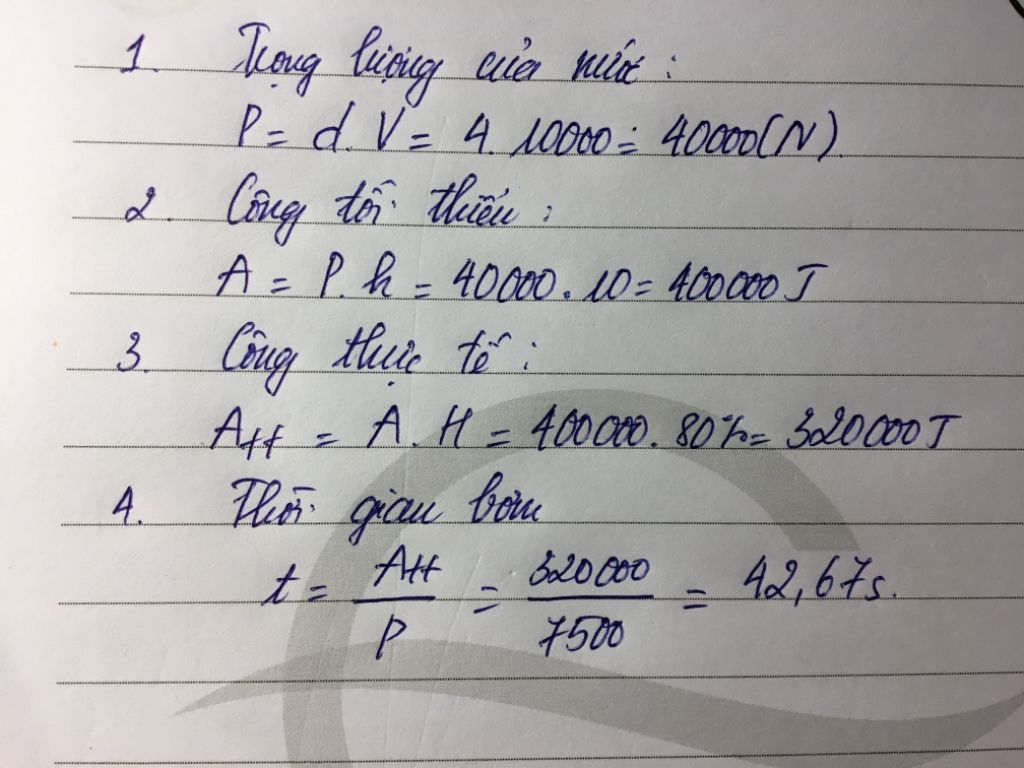 1. Trọng lượng của nước :
P = d. V = 4. 10000 = 40000(N).
2. Công tối thiểu :
A = P. h = 40000. 10 = 400000 J
3. Công thực tế :
Att = A. H = 400000. 80% = 320000 J
4. Thời gian bơm
t = Att / P = 320000 / 7500 = 42,67s.